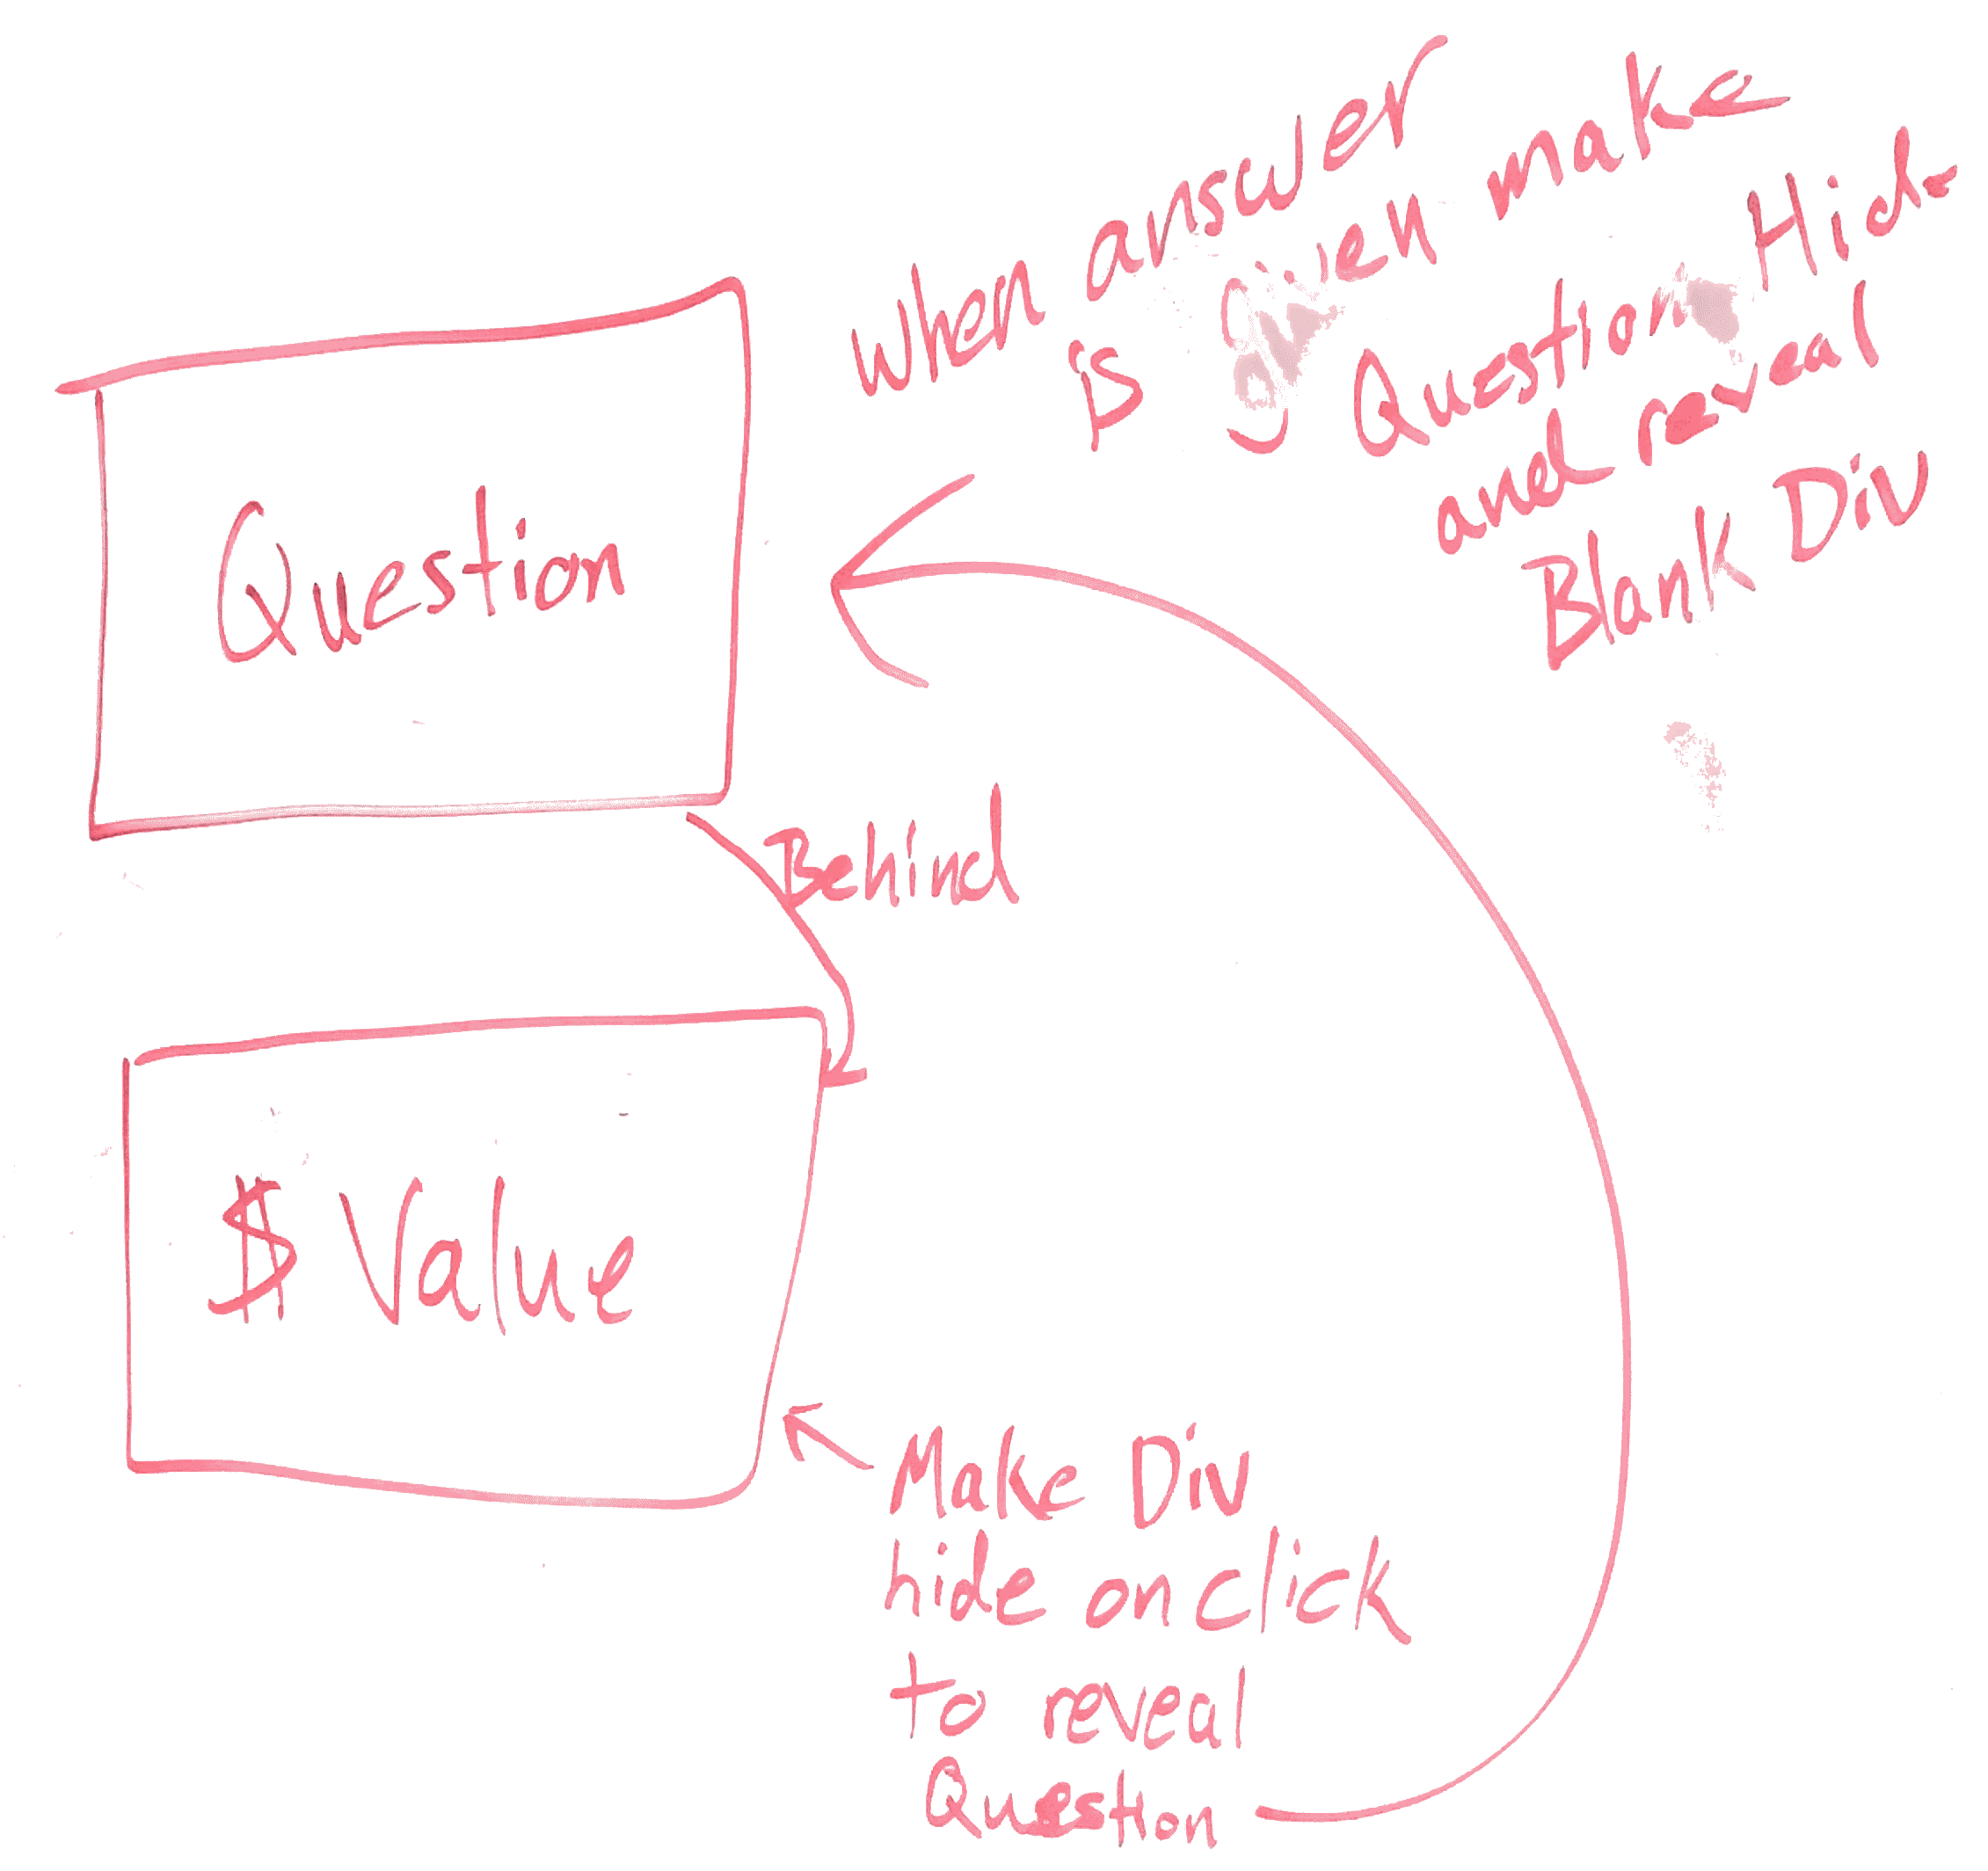 When answer
is given make
Question Hide
and reveal
Blank Div
Question
Behind
$ Value
Make Div
hide on click
to reveal
Question